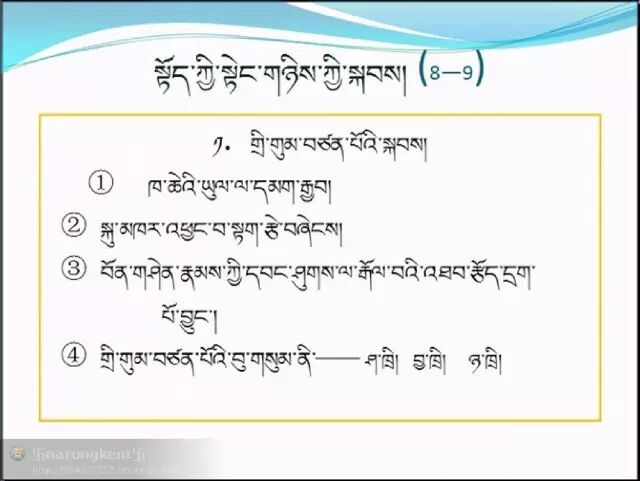 སྟོད་ཀྱི་སྟེང་གཉིས་ཀྱི་སྐབས། (8—9)
༡. གྲི་གུམ་བཙན་པོའི་སྐབས།
① ཁ་ཆེའི་ཡུལ་ལ་དམག་རྒྱབ།
② སྐུ་མཁར་འཕྱང་བ་སྟག་རྩེ་བཞེངས།
③ བོན་གཤེན་རྣམས་ཀྱི་དབང་ཤུགས་ལ་རྒོལ་བའི་འཐབ་རྩོད་དྲག་
པོ་བྱུང་།
④ གྲི་གུམ་བཙན་པོའི་བུ་གསུམ་ནི་—— ཤ་ཁྲི། བྱ་ཁྲི། ཉ་ཁྲི།
卐narongkent卐